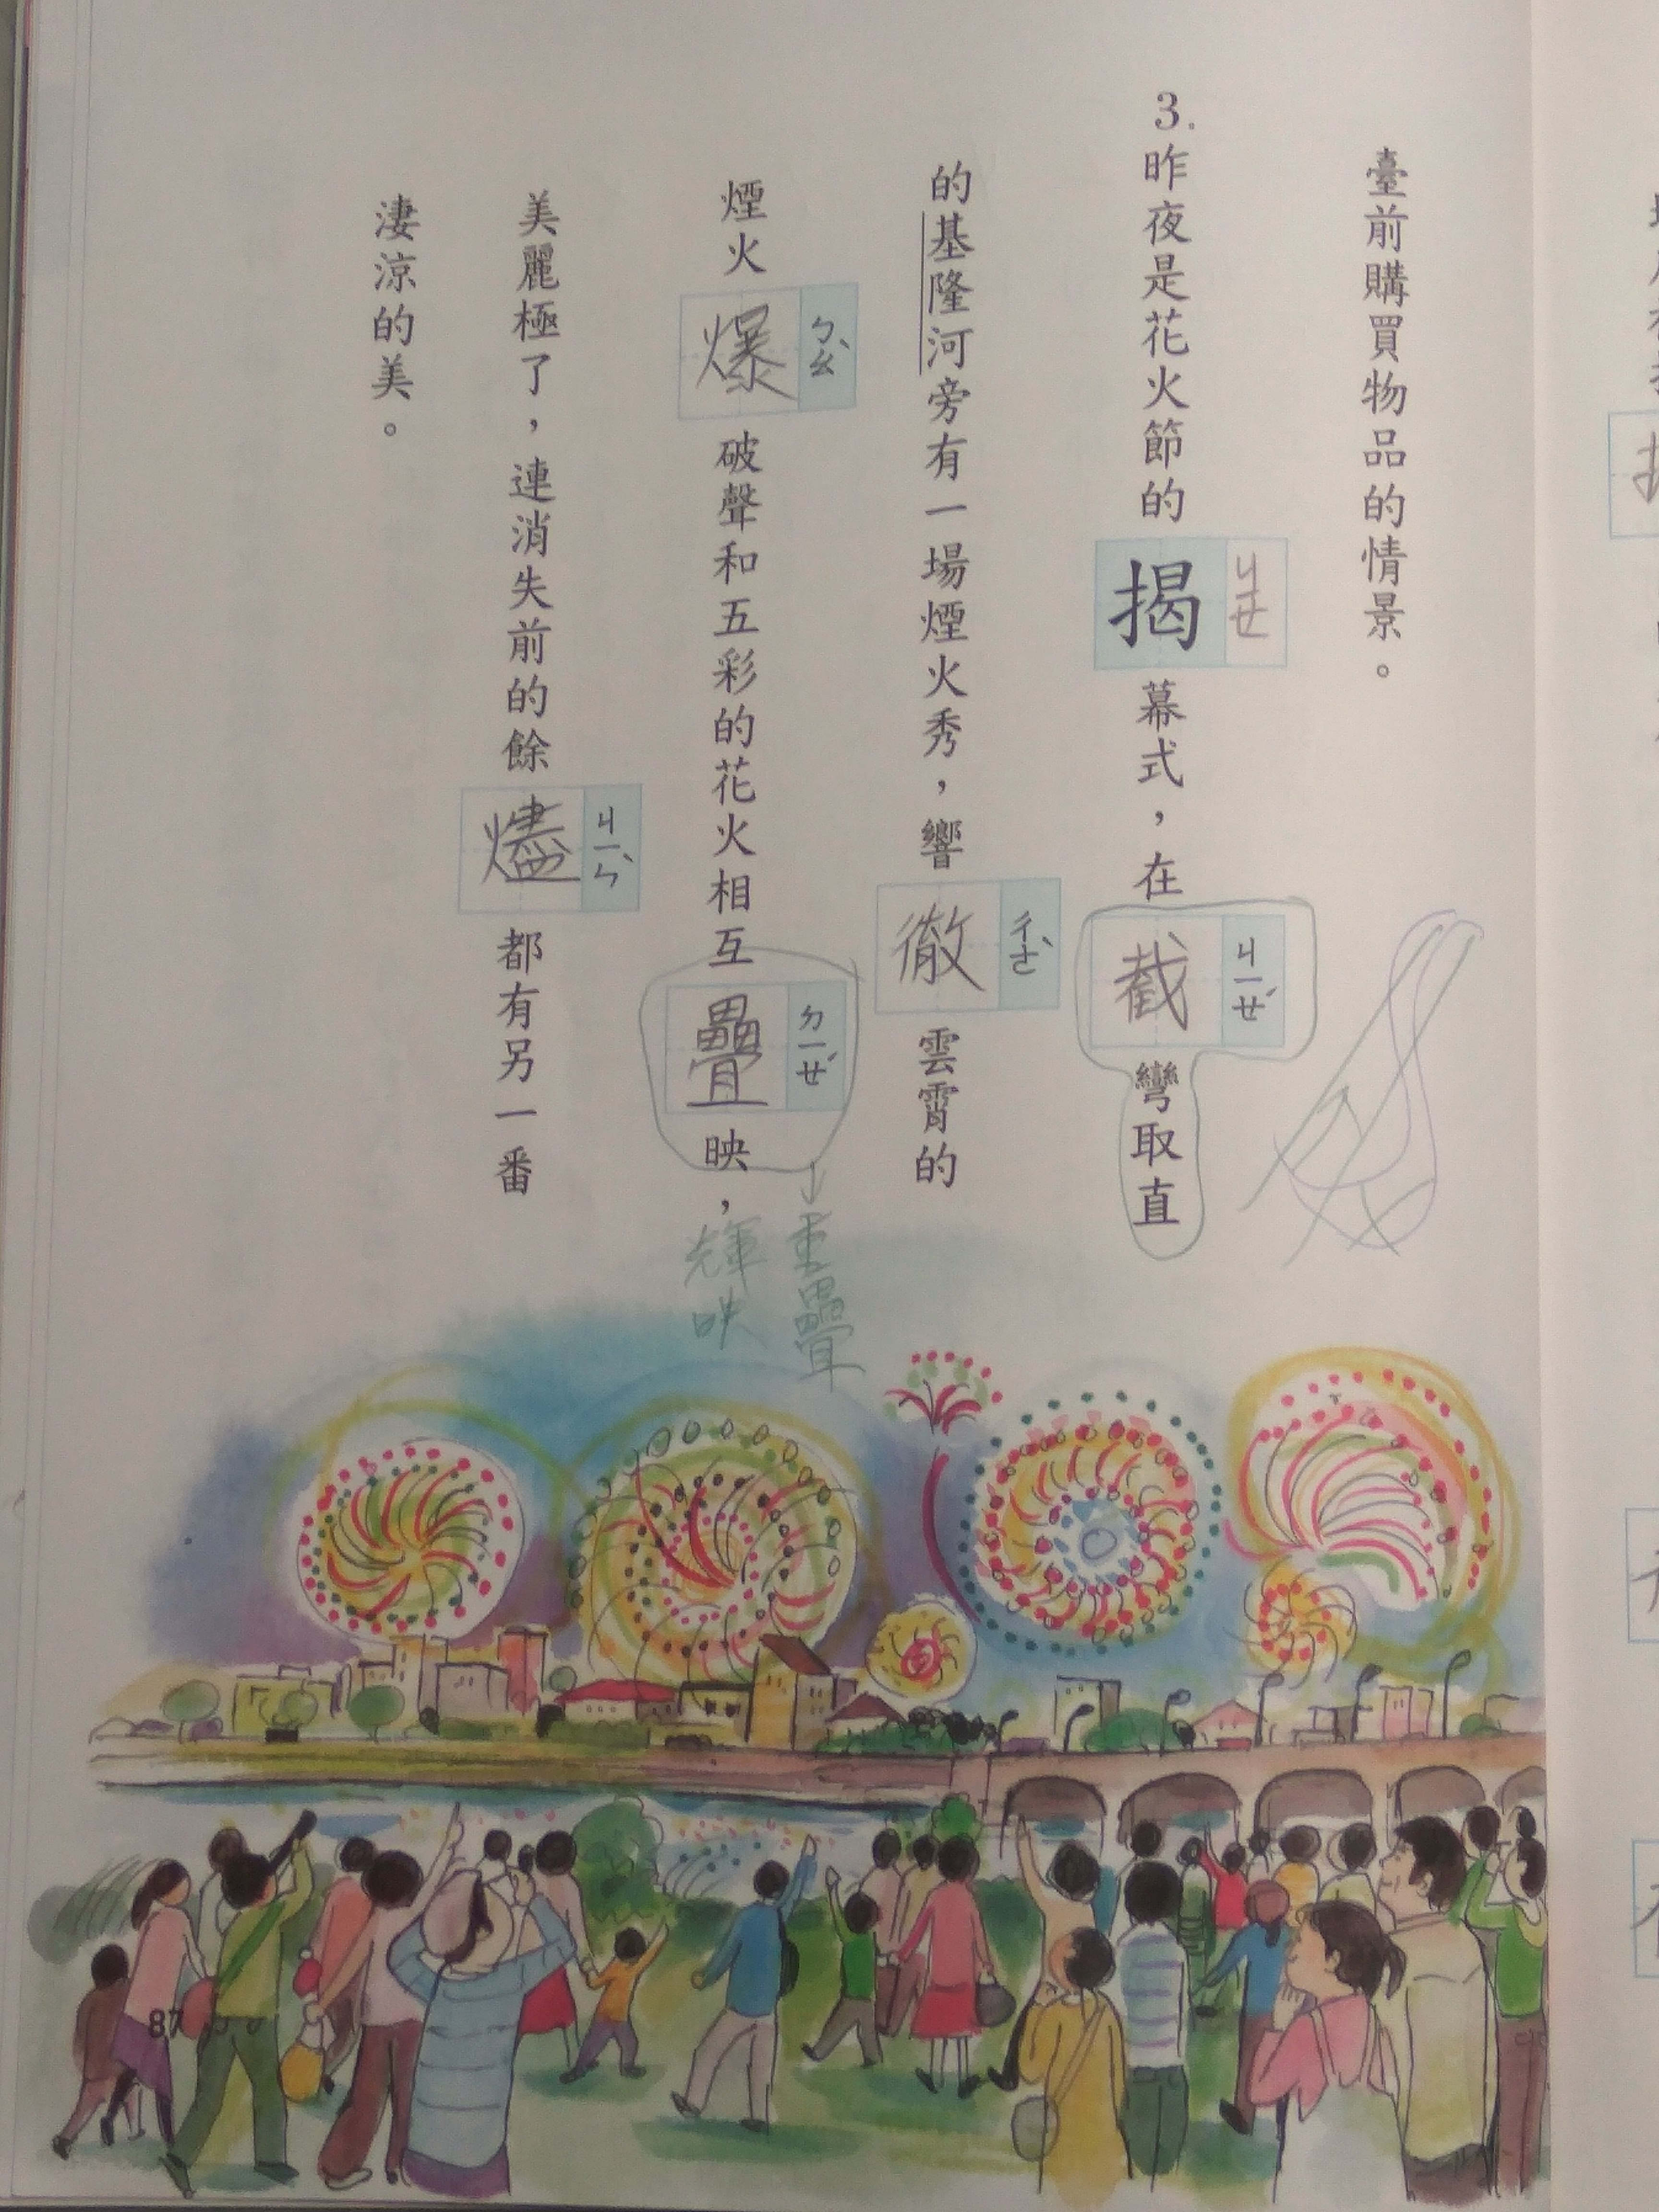 臺前購買物品的情景。
3.昨夜是花火節的揭ㄐㄧㄝ幕式，在截ㄐㄧㄝˊ彎取直
的基隆河旁有一場煙火秀，響徹ㄔㄜˋ雲霄的
煙火爆ㄅㄠˋ破聲和五彩的花火相互疊ㄉㄧㄝˊ映，
重疊
輝映
美麗極了，連消失前的餘燼ㄐㄧㄣˋ都有另一番
淒涼的美。
87